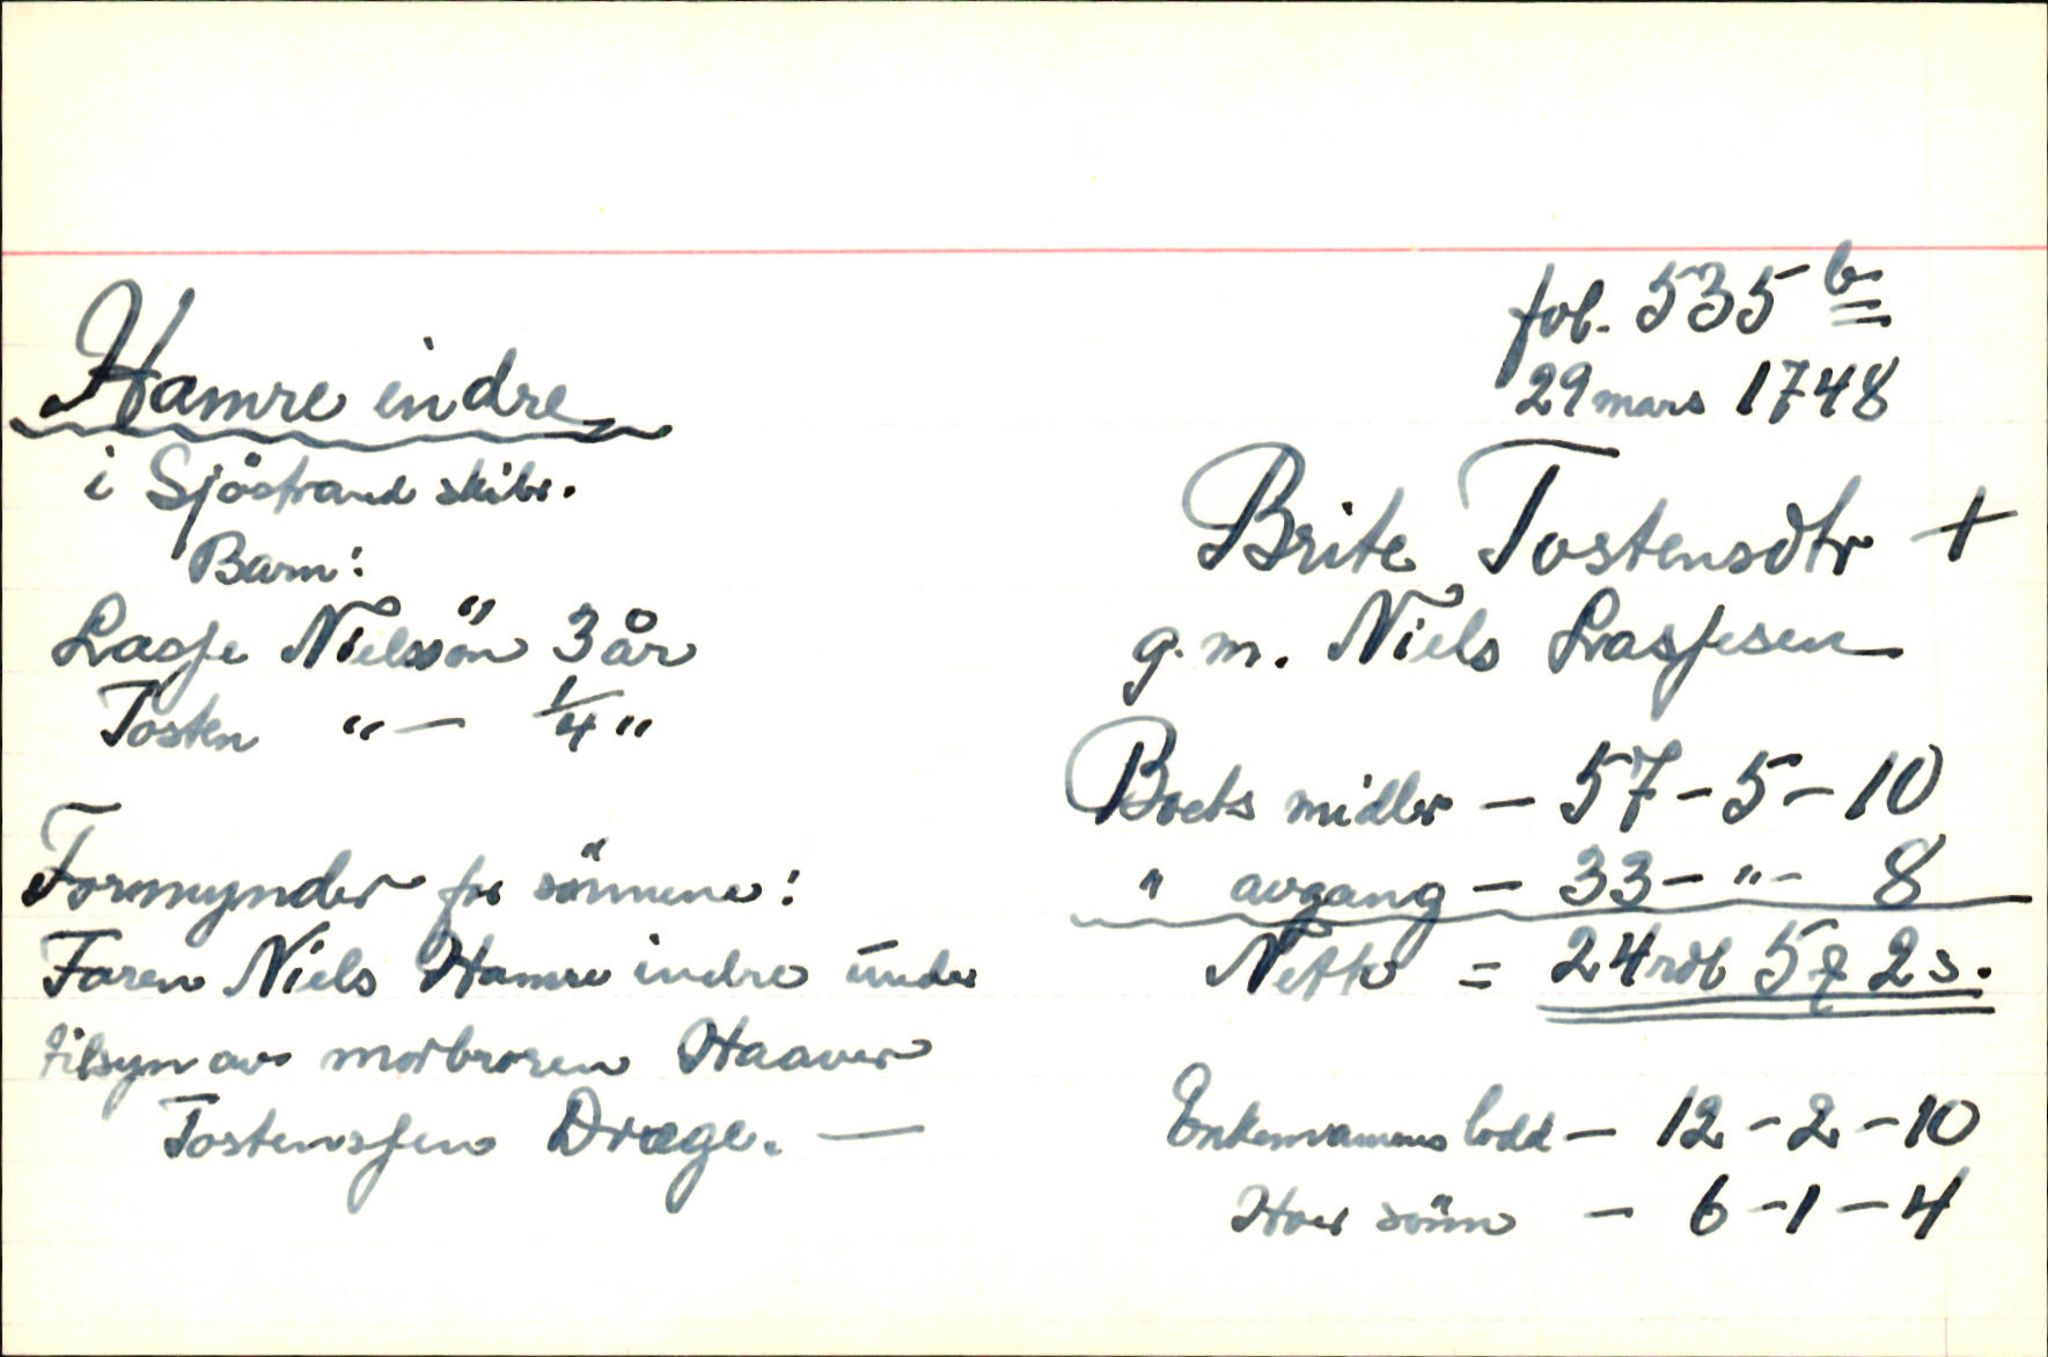 Hamre indre
i Sjöstrand skibr.
Barn:
Lasse Nielssön 3 år
Tosten "— 1/4 "
Formynder for sönnene:
Faren Niels Hamre indre under
tilsyn av morbroren Haaver
Tostenssen Drage. —
fol. 535 b
29 mars 1748
Brite Tostensdtr +
g.m. Niels Lassesen
Boets midler — 57 - 5 - 10
" avgang — 33 - " - 8
Netto = 24 rdl 5 ꝗ 2 s.
Enkemannens lodd — 12 - 2 - 10
Hver sönn — 6 - 1 - 4